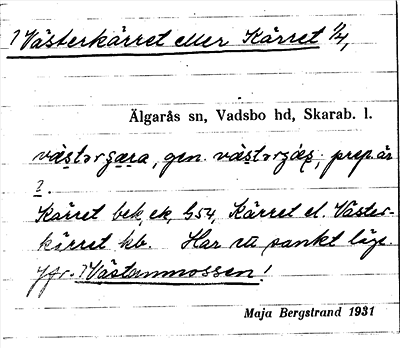 ? Västerkärret eller Kärret 1/4,
Älgarås sn, Vadsbo hd, Skarab. l.
västərgæra, gen. västərgæʂ; prep. är
?.
Kärret bek, ek, b54, Kärret el. Väster-
kärret kb. Har ru sankt läge.
Jfr. ? Västanmossen!
Maja Bergstrand 1931